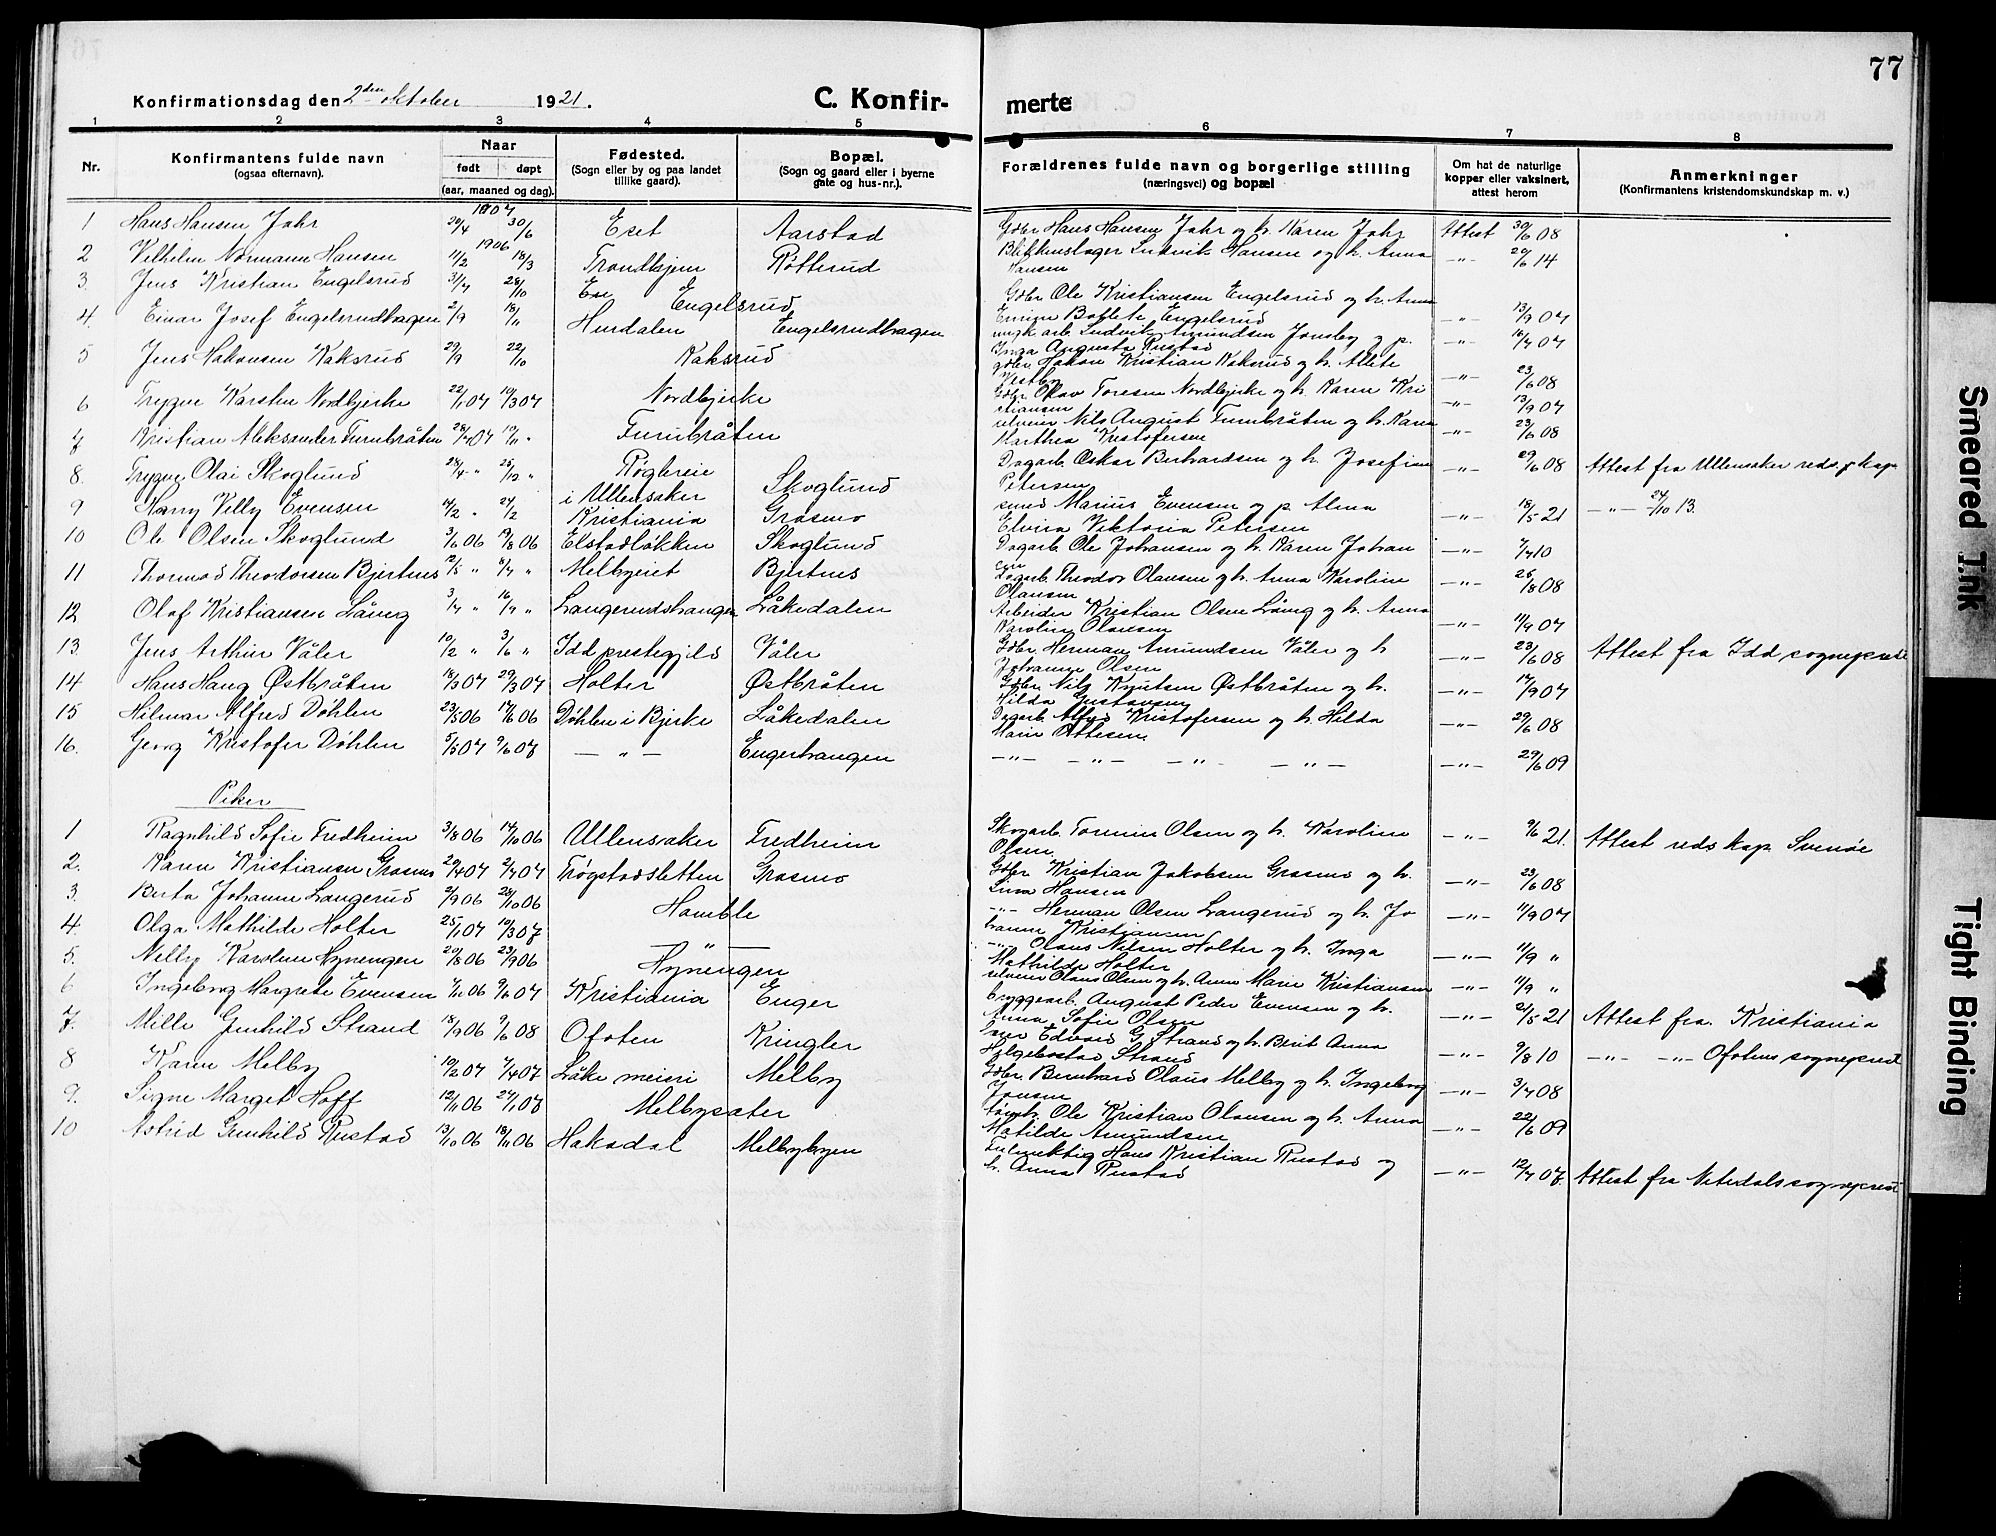 77
Konfirmationsdag den 2den oktober 1921.
C. Konfir-
merte
1 2 3 4 5 6 7 8
Nr.
Konfirmantens fulde navn
(ogsaa efternavn).
Naar
født døpt
(aar, maaned og dag).
Fødested.
(Sogn eller by og paa landet
tillike gaard).
Bopæl.
(Sogn og gaard eller i byerne
gate og hus-nr.).
Forældrenes fulde navn og borgerlige stilling
(næringsvei) og bopæl
Om hat de naturlige
kopper eller vaksinert,
attest herom
Anmerkninger
(Konfirmantens kristendomskundskap m. v.)
1907
1 Hans Hansen Jahr 29/4 30/6 Eset Aarstad Gdbr Hans Hansen Jahr og h. Karen Jahr Attest 30/6 08
1906
2 Vilhelm Normann Hansen 11/2 18/3 Trondhjem Røtterud Blikkenslager Ludvik Hansen og h. Anna
Hansen -"- 20/6 14
3. Jens Kristian Engelsrud 31/7 28/10 Engelsrud Gdbr Ole Kristiansen Engelsrud og h. Anna
Engelsrud -"- 13/9 07
4. Einar Josef Engelsrudhagen 2/9 18/11 Hurdalen Engelsrudhagen ungk arb. Ludvik Amundsen Jonsby og p.
Inga Augusta Rustad -"- 16/7 07
5 Jens Hakonsen Kaksrud 29/9 22/10 Kaksrud gdbr. Hakon Kristian Kaksrud og h.
-"- 23/6 08
6 Trygve Karsten Nordbjerke 22/1 07 10/3 07 Nordbjerke Gdbr Olav Toresen Nordbjerke og h. Karen Kri
stiansen -"- 13/9 07
7 Kristian Aleksander Furubråten 28/7 07 10/11 " Furubråten Nils August Furubråten og h. Karen
Marthea Kristofersen -"- 23/6 08
8. Trygve Olai Skoglund 24/4 " 25/12 " Røgbreie
i Ullensaker Skoglund Dagarb. Oskar Berhardsen og h. Josefine
Petersen -"- 29/6 08 Attest fra Ullensaker reds. kap
9 Harry Villy Evensen 14/2 " 24/2 Kristiania Grasmo smed Marius Evensen og p Alma
Elvira Viktoria Petersen -"- 18/5 21 -"- 24/10 13.
10 Ole Olsen Skoglund 3/6 06 19/8 06 Elstadløkken Skoglund Dagarb. Ole Johansen og h. Karen Johan
-"- 7/7 10
11 Thormod Theodorsen Bjertnes 12/5 " 8/7 " Melbyeiet Bjertnes Dagarb. Theodor Olausen og h. Anna Karoline
Olausen -"- 26/8 08
12 Olaf Kristiansen Låing 3/7 " 16/9 " Langerudshangen Låkedalen Arbeider Kristian Olsen Låing og h. Anna
Karoline Olausen -"- 11/9 07
13 Jens Arthur Våler 10/2 " 3/6 " Idd prestegjeld Våler Gdbr. Herman Amundsen Våler og h
Johanne Olsen -"- 23/6 08 Attest fra Idd sogneprest
14 Hans Haug Østbråten 18/3 07 29/3 07 Holter Østbråten Gdbr. Nils Knutsen Østbråten og h.
Hilda Gustavsen -"- 17/9 07
15 Hilmar Alfred Døhlen 23/5 06 17/6 06 Døhlen i Bjerke Låkedalen Dagarb. Alfred Kristofersen og h. Hilda
Marie Ottesen. -"- 29/6 08
16. Georg Kristofer Døhlen 5/5 07 9/6 07 -"- Engerhangen -"- -"- -"- -"- -"- 29/6 09
Piker
1 Ragnhild Sofie Fredheim 3/8 06 14/10 06 Ullensaker Fredheim Skogarb. Tormin Olsen og h. Karoline
Olsen. -"- 9/6 21. Attest reds kap. Svenöe
2. Karen Kristiansen Grasmo 20/4 07 2/7 07 Trøgstadsletten Grasmo Gdbr. Kristian Jakobsen Grasmo og h.
Lina Hansen -"- 23/6 08
3. Berta Johanne Langerud 2/9 06 28/10 06 Hamble -"- Herman Olsen Langerud og h. Jo
hanne Kristiansen -"- 11/9 07
4. Olga Mathilde Holter 25/1 07 10/3 07 -"- -"- Olaus Nilsen Holter og h. Inga
Mathilde Holter -"- 11/9 "
5. Nelly Karoline Hynengen 20/8 06 23/9 06 Hynengen Olaus Olsen og h. Anne Marie Kristiansen -"- 11/9 "
6 Ingeborg Margrete Evensen 7/11 06 9/6 07 Kristiania Enger bryggearb. August Peder Evensen og h.
Anna Sofie Olsen -"- 21/5 21 Attest fra Kristiania
7. Mille Gunhild Strand 18/9 06 9/6 08 Ofoten Kringler Edvard G. Strand og h. Berit Anna
Helgebostad Strand -"- 9/8 10 -"- -"- Ofotens sogneprest
8 Karen Melby 19/2 07 7/4 07 Låke meieri Melby Gdbr. Bernhard Olaus Melby og h. Ingeborg
Jonsen -"- 3/7 08
9. Signe Marget Hoff 12/11 06 27/1 07 Melbysæter tømh. Ole Kristian Olausen og h. Anna
Matilde Amundsen -"- 22/6 09
10 Astrid Gunhild Rustad 13/10 06 18/11 06 Hakadal Melbybyen Fulmektig Hans Kristian Rustad og
h. Anna Rustad -"- 12/7 07. Attest fra Nitedals sogneprest
Smeared Ink
Tight Binding